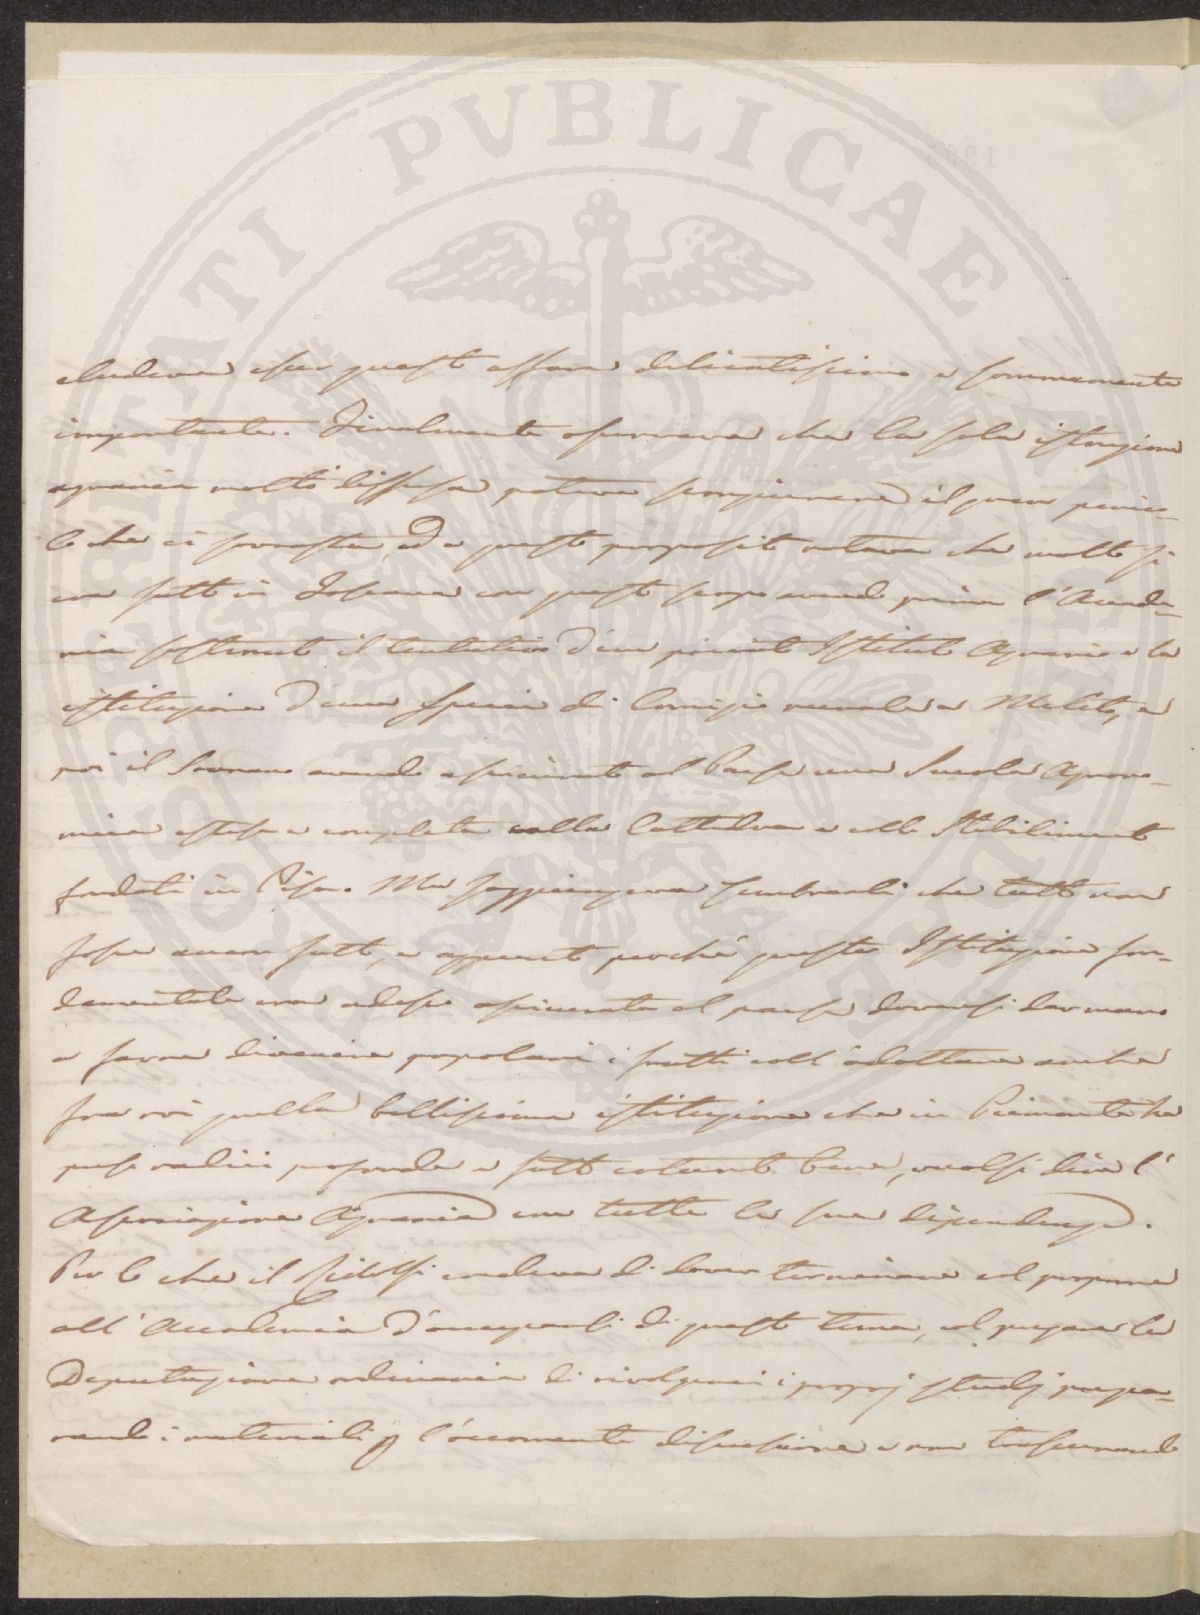 PROSPERITATI PVBLICAE AVGENDAE
cludeva esser questo affare delicatissimo e sommamente
importante. Finalmente osservava che la sola istruzione
agraria molto diffusa poteva scongiurare il gran perico-
lo che ci sovrasta, ed a questo proposito notava che molto si
era fatto in Toscana con questo scopo avendo prima l'Accade-
mia sostenuto il tentativo d'un privato Istituto Agrario e la
istituzione d'una specie di Comizio rurale a Meleto, e
poi il Sovrano avendo assicurato al Paese una Scuola Agrono-
mica estesa e completa colla Cattedra e collo Stabilimento
fondati in Pisa. Ma soggiungeva sembrargli che tutto non
fosse ancora fatto, e appunto perché questa Istituzione fon-
damentale era adesso assicurata al paese doversi dar mano
a farne divenire popolari i frutti coll'adottare anche
fra noi quella bellissima istituzione che in Piemonte ha
preso radici profonde e fatto cotanto bene, vuolsi dire l'
Associazione Agraria con tutte le sue dipendenze.
Per lo che il Ridolfi credeva di dover terminare col proporre
all'Accademia d'occuparsi di questo tema, col pregare la
Deputazione ordinaria di rivolgervi i proprj studj prepa-
rando i materiali p l'occorrente discussione e non trascurando